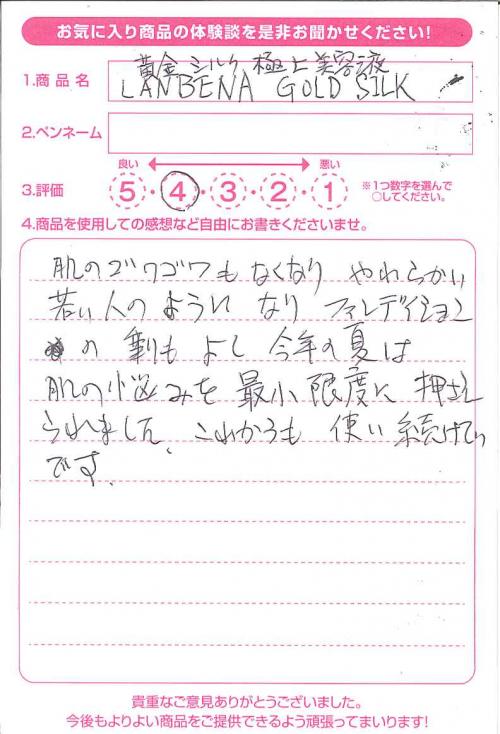 お気に入り商品の体験談を是非お聞かせください!
1.商品名
黄金シルク極上美容液
LANBENA GOLD SILK
2.ペンネーム
良い 悪い
3.評価 5・4・3・2・1 ※1つ数字を選んで
○してください。
4.商品を使用しての感想など自由にお書きくださいませ。
肌のゴワゴワもなくなり やわらかい
若い人のようになり ファンデイション
の 事もよし 今年の夏は
肌の悩みを最小限度に押さえ
られました、これからも使い続けてい
です.
貴重なご意見ありがとうございました。
今後もよりよい商品をご提供できるよう頑張ってまいります!